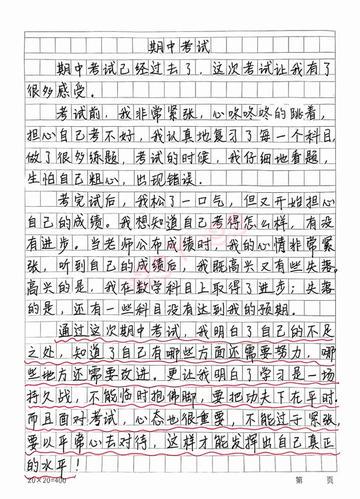 期中考试
期中考试已经过去了，这次考试让我有了
很多感受。
考试前，我非常紧张，心咚咚咚的跳着，
担心自己考不好，我认真地复习了每一个科目，
做了很多练题，考试的时候，我仔细地看题，
生怕自己粗心，出现错误。
考完试后，我松了一口气，但又开始担心
自己的成绩。我想知道自己考得怎么样，有没
有进步。当老师公布成绩时，我的心情非常紧
张，听到自己的成绩后，我既高兴又有些失落，
高兴的是，我在数学科目上取得了进步；失落
的是，还有一些科目没有达到我的预期。
通过这次期中考试，我明白了自己的不足
之处，知道了自己有哪些方面还需要努力，哪
些地方还需要改进。更让我明白了学习是一场
持久战，不能临时抱佛脚，要把功夫下在平时，
而且面对考试，心态也很重要，不能过于紧张，
要以平常心去对待，这样才能发挥出自己真正
的水平！
20×20=400 第 页